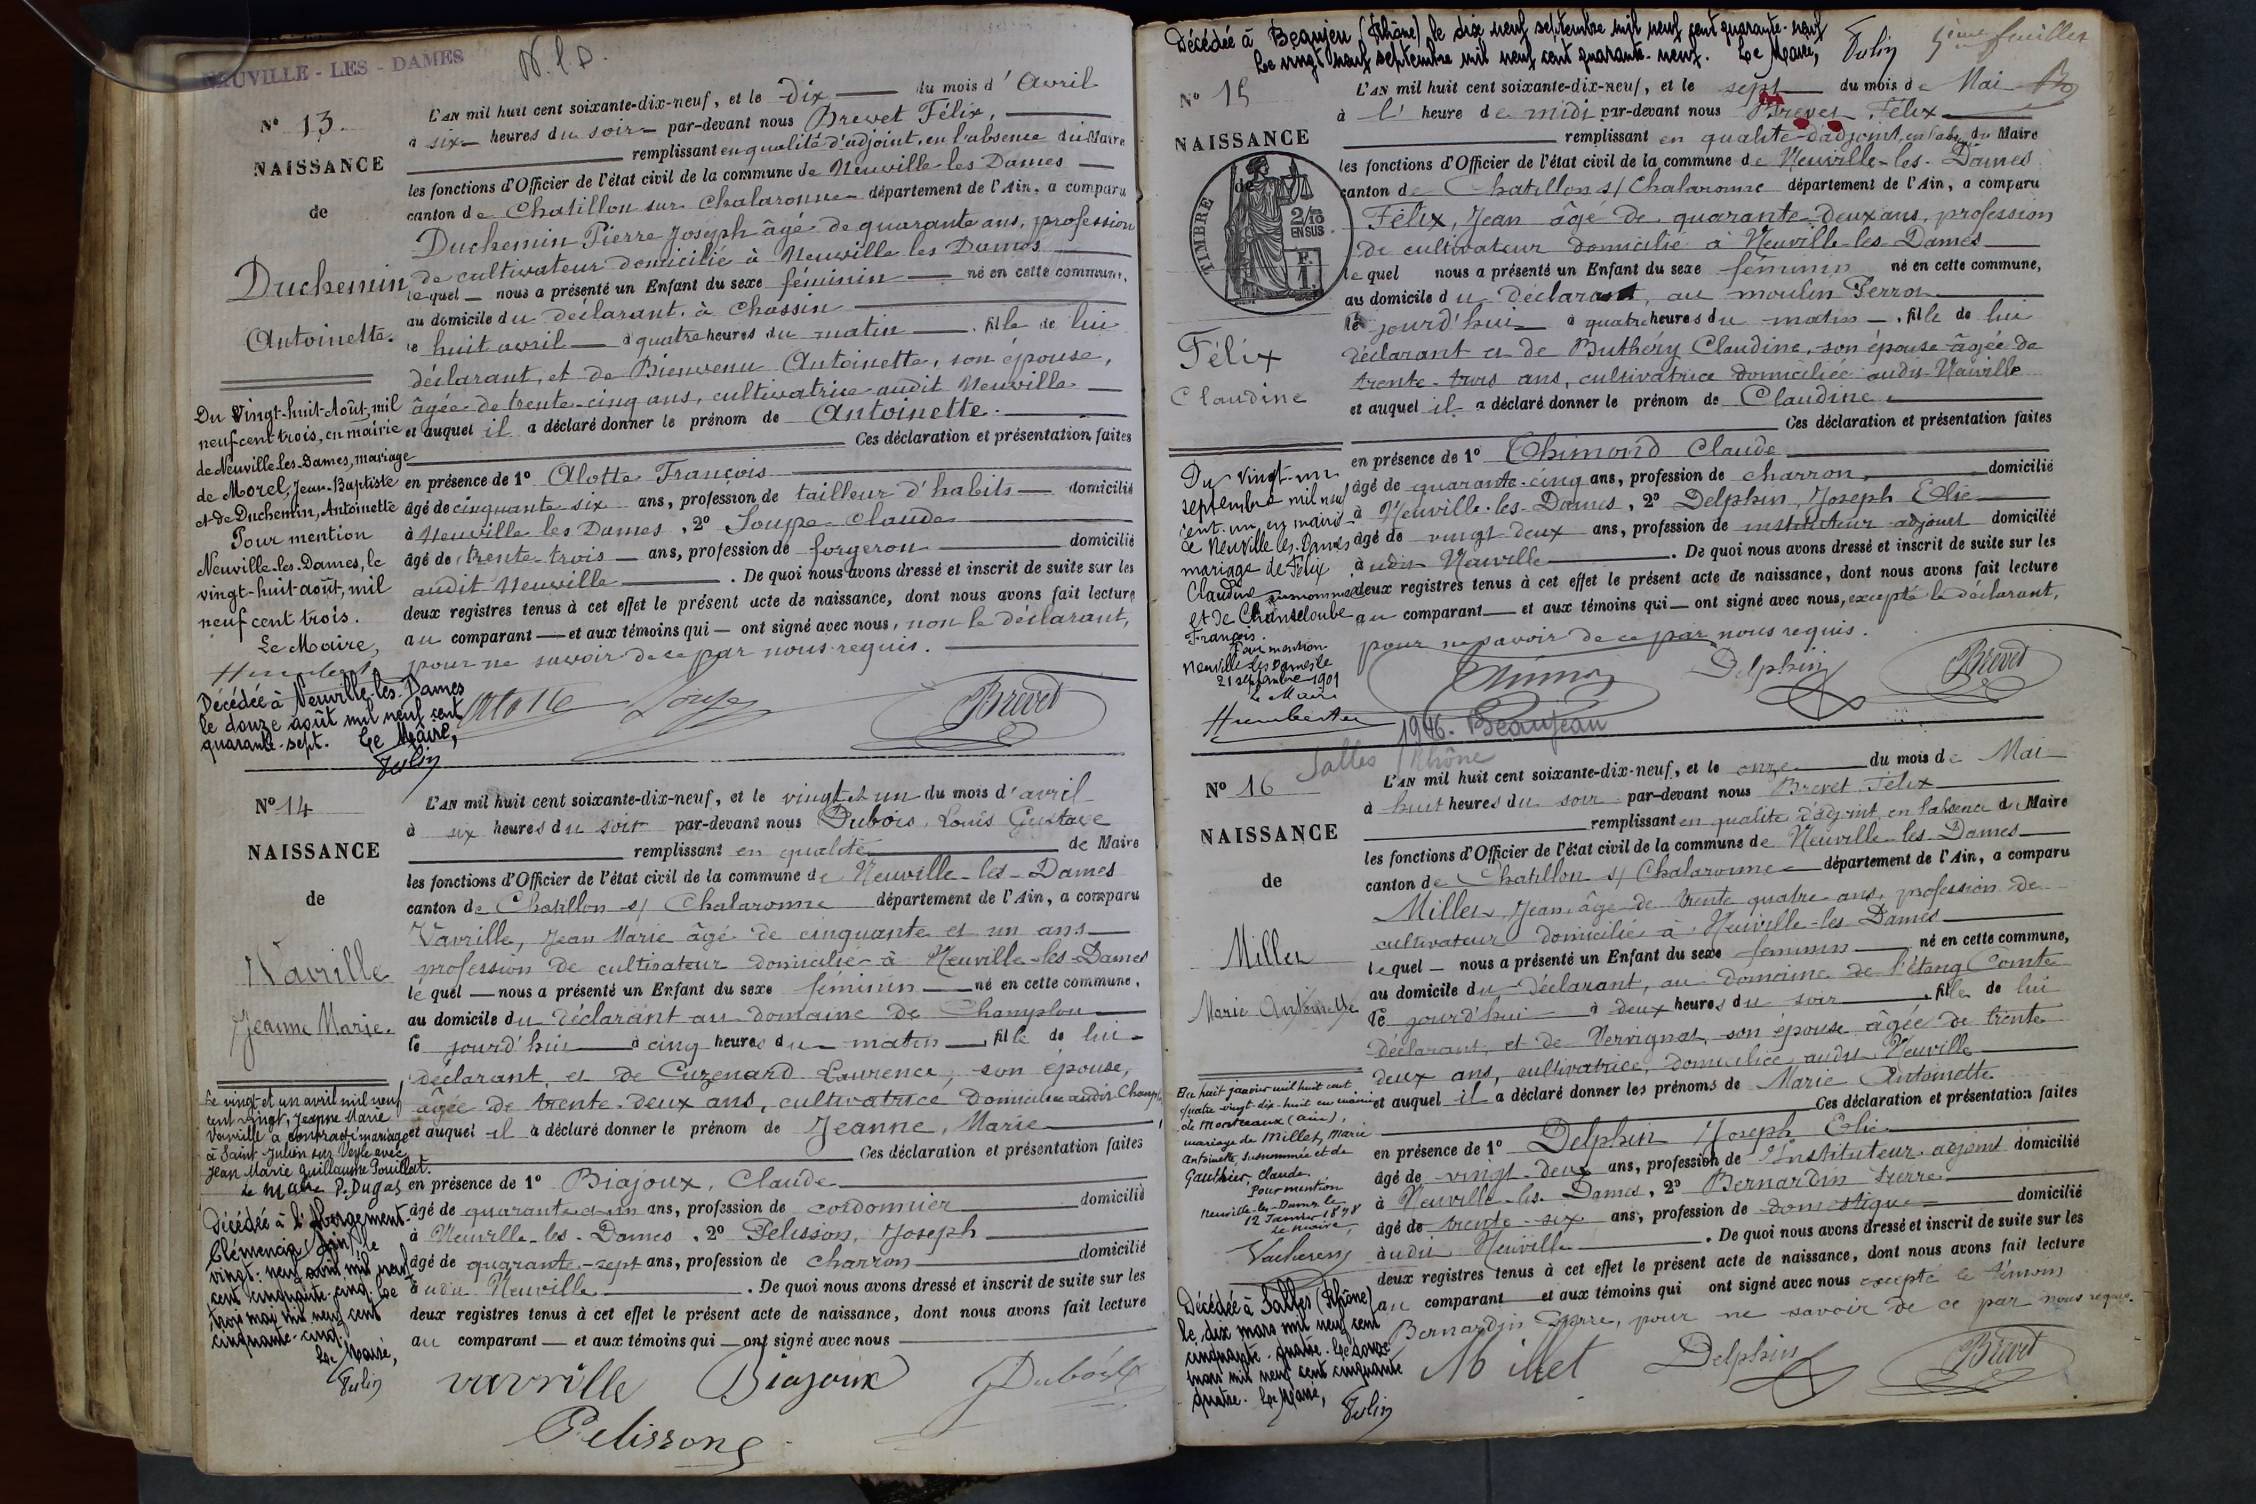 NEUVILLE - LES - DAMES
N. l. D.
N° 13.
NAISSANCE
de
Duchemin
Antoinette.
L'AN mil huit cent soixante-dix-neuf, et le dix du mois d'Avril
à six heures du soir par-devant nous Brevet Félix,
remplissant en qualité d'adjoint, en l'absence du Maire
les fonctions d'Officier de l'état civil de la commune de Neuville les Dames
canton de Chatillon sur Chalaronne département de l'Ain, a comparu
Duchemin Pierre Joseph âgé de quarante ans, profession
de cultivateur domicilié à Neuville les Dames
lequel nous a présenté un Enfant du sexe féminin né en cette commune,
au domicile du déclarant, à Chassin
le huit avril à quatre heures du matin, fille de lui
déclarant, et de Bienvenu Antoinette, son épouse,
âgée de trente-cinq ans, cultivatrice audit Neuville
et auquel il a déclaré donner le prénom de Antoinette.
Ces déclaration et présentation faites
en présence de 1° Alotte François
âgé de cinquante six ans, profession de tailleur d'habits domicilié
à Neuville les Dames, 2° Soupe Claude
âgé de trente-trois ans, profession de forgeron domicilié
audit Neuville. De quoi nous avons dressé et inscrit de suite sur les
deux registres tenus à cet effet le présent acte de naissance, dont nous avons fait lecture
au comparant et aux témoins qui ont signé avec nous, non le déclarant,
pour ne savoir de ce par nous requis.
Alotte Soupe Brevet
Du Vingt-huit Août, mil
neuf cent trois, en mairie
de Neuville-les-Dames, mariage
de Morel, Jean-Baptiste
et de Duchemin, Antoinette
Pour mention
Neuville-les-Dames, le
vingt-huit août, mil
neuf cent trois.
Le Maire,
Humbert
Décédée à Neuville-les-Dames
le douze août mil neuf cent
quarante-sept. Le Maire,
Tulin
N° 14
NAISSANCE
de
Vavrille
Jeanne Marie.
L'AN mil huit cent soixante-dix-neuf, et le vingt et un du mois d'avril
à six heures du soir par-devant nous Dubois, Louis Gustave
remplissant en qualité de Maire
les fonctions d'Officier de l'état civil de la commune de Neuville-les-Dames
canton de Chatillon s/ Chalaronne département de l'Ain, a comparu
Vavrille, Jean Marie âgé de cinquante et un ans
profession de cultivateur domicilié à Neuville-les-Dames
lequel nous a présenté un Enfant du sexe féminin né en cette commune,
au domicile du déclarant au domaine de Champlon
le jourd'hui à cinq heures du matin, fille de lui
déclarant et de Cuzenard Laurence, son épouse,
âgée de trente-deux ans, cultivatrice domiciliée audit
et auquel il a déclaré donner le prénom de Jeanne, Marie
Ces déclaration et présentation faites
en présence de 1° Biajoux, Claude
âgé de quarante et un ans, profession de cordonnier domicilié
à Neuville-les-Dames, 2° Pelisson, Joseph
âgé de quarante-sept ans, profession de charron domicilié
audit Neuville. De quoi nous avons dressé et inscrit de suite sur les
deux registres tenus à cet effet le présent acte de naissance, dont nous avons fait lecture
au comparant et aux témoins qui ont signé avec nous
vavrille Biajoux Dubois
Pelisson
Le vingt et un avril mil neuf
cent vingt, Jeanne Marie
Vavrille a contracté mariage
à Saint-Julien sur Veyle avec
Jean Marie Guillaume Pouillat.
Le Maire P. Dugas
Décédée à l'Abergement-
Clémencia (Ain) le
vingt-neuf avril mil neuf
cent cinquante-cinq. Le
trois mai mil neuf cent
cinquante-cinq.
Le Maire,
Tulin
Décédée à Beaujeu (Rhône) le dix neuf septembre mil neuf cent quarante-neuf
Le vingt neuf septembre mil neuf cent quarante-neuf. Le Maire, Tulin
5ième feuillet
N° 15
NAISSANCE
de
TIMBRE
2/10
EN SUS
F.
1.
Félix
Claudine
L'AN mil huit cent soixante-dix-neuf, et le sept du mois de Mai
à l'heure de midi par-devant nous Brevet Félix
remplissant en qualité d'adjoint, en l'abs. du Maire
les fonctions d'Officier de l'état civil de la commune de Neuville-les-Dames
canton de Chatillon s/ Chalaronne département de l'Ain, a comparu
Félix, Jean âgé de quarante-deux ans, profession
de cultivateur domicilié à Neuville-les-Dames
lequel nous a présenté un Enfant du sexe féminin né en cette commune,
au domicile du déclarant, au moulin Perron
le jourd'hui à quatre heures du matin, fille de lui
déclarant et de Buthéry Claudine, son épouse âgée de
trente-trois ans, cultivatrice domiciliée audit Neuville
et auquel il a déclaré donner le prénom de Claudine
Ces déclaration et présentation faites
en présence de 1° Thimond Claude
âgé de quarante-cinq ans, profession de charron, domicilié
à Neuville-les-Dames, 2° Delphin, Joseph Elie
âgé de vingt deux ans, profession de instituteur adjoint domicilié
audit Neuville. De quoi nous avons dressé et inscrit de suite sur les
deux registres tenus à cet effet le présent acte de naissance, dont nous avons fait lecture
au comparant et aux témoins qui ont signé avec nous, excepté le déclarant,
pour ne savoir de ce par nous requis.
Delphin Brevet
Du vingt-un
septembre mil neuf
cent-un, en mairie
de Neuville-les-Dames
mariage de Félix
Claudine susnommée
et de Chanteloube
François.
Pour mention
Neuville-les-Dames le
21 septembre 1901
Le Maire
Humbert
1946. Beaujeau
Salles Rhône
N° 16
NAISSANCE
de
Millet
Marie Antoinette
L'AN mil huit cent soixante-dix-neuf, et le onze du mois de Mai
à huit heures du soir par-devant nous Brevet Félix
remplissant en qualité d'adjoint, en l'absence du Maire
les fonctions d'Officier de l'état civil de la commune de Neuville-les-Dames
canton de Chatillon s/ Chalaronne département de l'Ain, a comparu
Millet, Jean, âgé de trente quatre ans, profession de
cultivateur domicilié à Neuville-les-Dames
lequel nous a présenté un Enfant du sexe féminin né en cette commune,
au domicile du déclarant, au domaine de l'étang Comte
le jourd'hui à deux heures du soir, fille de lui
déclarant, et de Vervignat, son épouse âgée de trente
deux ans, cultivatrice, domiciliée audit Neuville
et auquel il a déclaré donner les prénoms de Marie Antoinette
Ces déclaration et présentation faites
en présence de 1° Delphin Joseph Elie
âgé de vingt-deux ans, profession de Instituteur adjoint domicilié
à Neuville-les-Dames, 2° Bernardin Pierre
âgé de trente-six ans, profession de domestique domicilié
audit Neuville. De quoi nous avons dressé et inscrit de suite sur les
deux registres tenus à cet effet le présent acte de naissance, dont nous avons fait lecture
au comparant et aux témoins qui ont signé avec nous excepté le témoin
Bernardin Pierre, pour ne savoir de ce par nous requis.
Millet Delphin Brevet
Le huit janvier mil huit cent
quatre vingt-dix-huit en mairie
de Montceaux (Ain),
mariage de Millet, Marie
Antoinette, susnommée et de
Gauthier, Claude.
Pour mention
Neuville-les-Dames le
12 Janvier 1898
Le Maire,
Décédée à Salles (Rhône)
le dix mars mil neuf cent
cinquante-quatre. Le douze
mars mil neuf cent cinquante
quatre. Le Maire,
Tulin